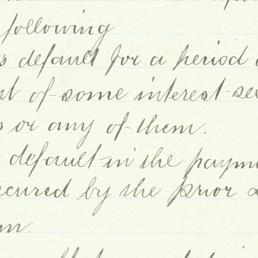 following
s default for a period
t of some interest-sec
s or any of them.
default in the payme
ecured by the prior
m.